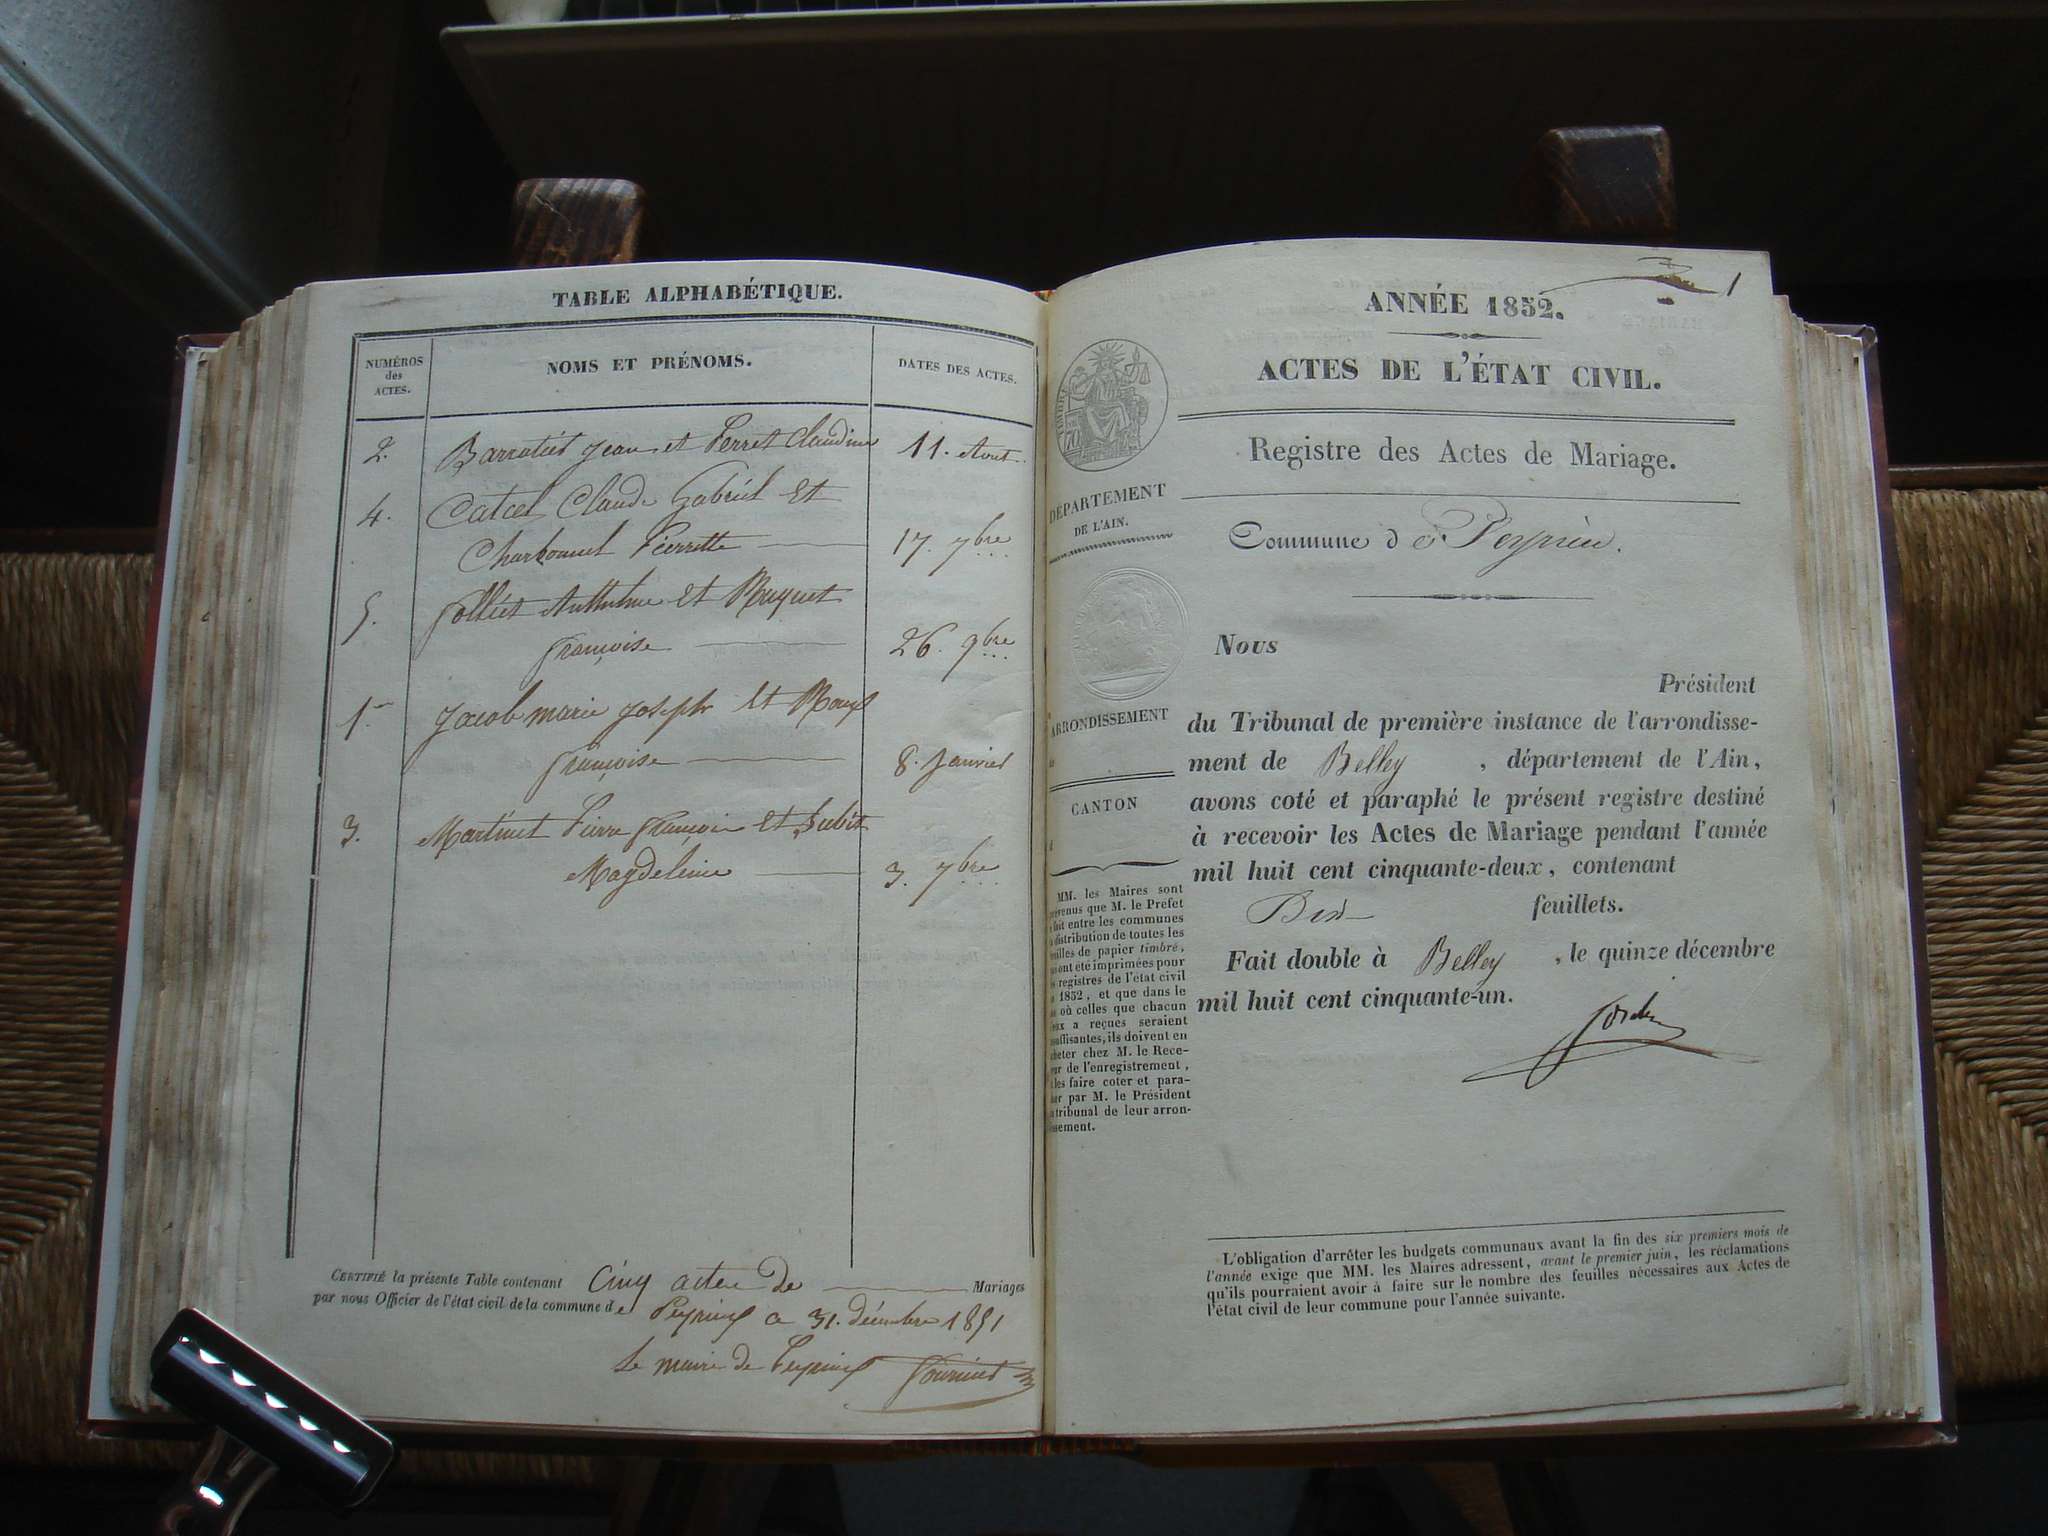 TABLE ALPHABÉTIQUE.
NUMÉROS
des
ACTES.
NOMS ET PRÉNOMS.
DATES DES ACTES.
2. Barratiet Jean et Perret Claudine 11. Aout
4. Catcel Claude Gabriel Et
Charbonnet Pierrette 17. 7bre
5. Jolliet Anthelme Et Muguet
françoise 26. 9bre
1. Jacob marie joseph Et
françoise 8. Janvier
3. Martinet Pierre françois Et
Magdeleine 3. 7bre
CERTIFIÉ la présente Table contenant Cinq actes de Mariages
par nous Officier de l'état civil de la commune de Peyrieu ce 31. décembre 1851
Le maire de Peyrieu
1
ANNÉE 1852.
ACTES DE L'ÉTAT CIVIL.
Registre des Actes de Mariage.
Commune de Peyrieu.
TIMBRE
DÉPARTEMENT
DE L'AIN.
ARRONDISSEMENT
CANTON
MM. les Maires sont
prévenus que M. le Prefet
fait entre les communes
distribution de toutes les
feuilles de papier timbré,
ont été imprimées pour
registres de l'état civil
1852, et que dans le
où celles que chacun
d'eux a reçues seraient
insuffisantes, ils doivent en
acheter chez M. le Rece-
veur de l'enregistrement,
les faire coter et para-
pher par M. le Président
tribunal de leur arron-
dissement.
Nous
Président
du Tribunal de première instance de l'arrondisse-
ment de Belley, département de l'Ain,
avons coté et paraphé le présent registre destiné
à recevoir les Actes de Mariage pendant l'année
mil huit cent cinquante-deux, contenant
feuillets.
Fait double à Belley, le quinze décembre
mil huit cent cinquante-un.
L'obligation d'arrêter les budgets communaux avant la fin des six premiers mois de
l'année exige que MM. les Maires adressent, avant le premier juin, les réclamations
qu'ils pourraient avoir à faire sur le nombre des feuilles nécessaires aux Actes de
l'état civil de leur commune pour l'année suivante.